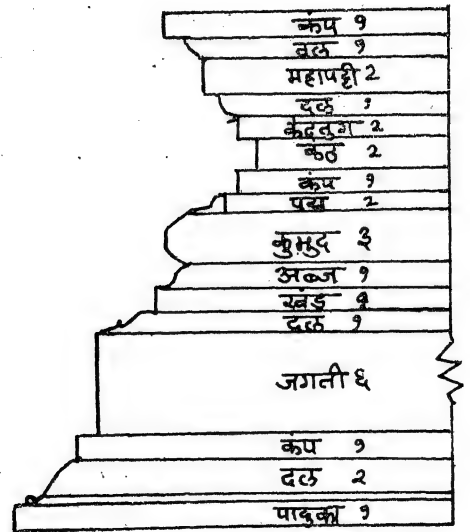 कंप १
दल १
महापट्टी २
दल १
कंठतुंग २
कंठ २
कंप १
पद्म २
कुमुद ३
अब्ज १
खंड १
दल १
जगती ६
कंप १
दल २
पादुका १